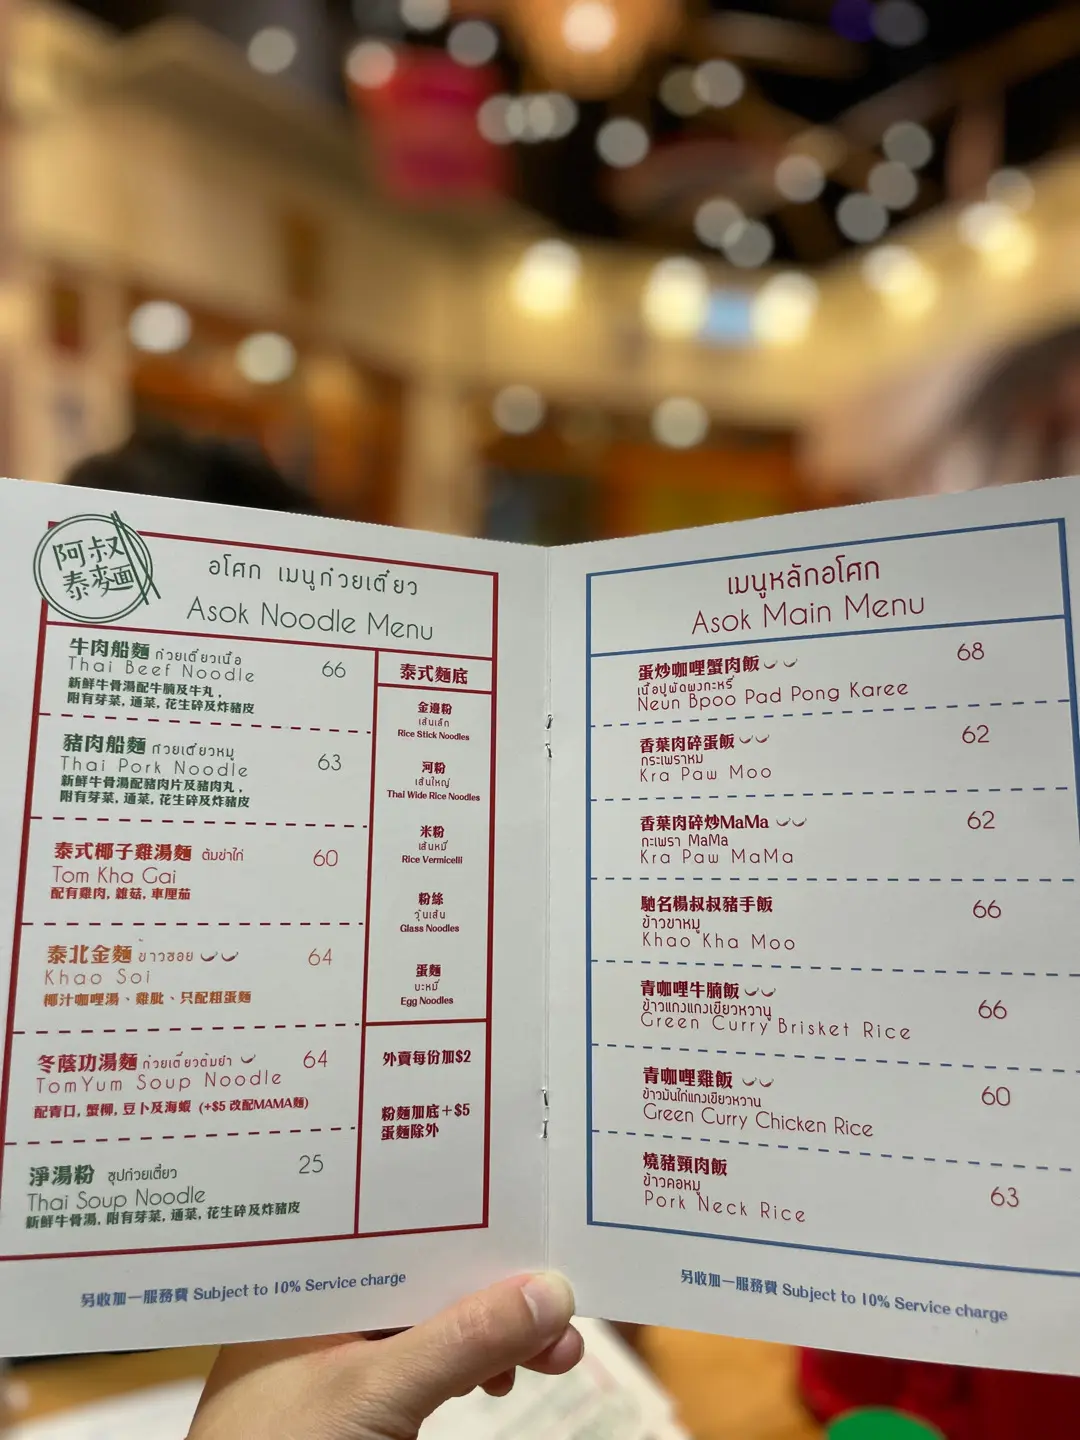 阿叔
泰麵
อโศก เมนูก๋วยเตี๋ยว
Asok Noodle Menu
牛肉船麵 ก๋วยเตี๋ยวเนื้อ 66
Thai Beef Noodle
新鮮牛骨湯配牛腩及牛丸,
附有芽菜, 通菜, 花生碎及炸豬皮
豬肉船麵 ก๋วยเตี๋ยวหมู 63
Thai Pork Noodle
新鮮牛骨湯配豬肉片及豬肉丸,
附有芽菜, 通菜, 花生碎及炸豬皮
泰式椰子雞湯麵 ต้มข่าไก่ 60
Tom Kha Gai
配有雞肉, 雜菇, 車厘茄
泰北金麵 ข้าวซอย 64
Khao Soi
椰汁咖哩湯、雞肶、只配粗蛋麵
冬蔭功湯麵 ก๋วยเตี๋ยวต้มยำ 64
TomYum Soup Noodle
配青口, 蟹柳, 豆卜及海蝦 (+$5 改配MAMA麵)
淨湯粉 ซุปก๋วยเตี๋ยว 25
Thai Soup Noodle
新鮮牛骨湯, 附有芽菜, 通菜, 花生碎及炸豬皮
泰式麵底
金邊粉
เส้นเล็ก
Rice Stick Noodles
河粉
เส้นใหญ่
Thai Wide Rice Noodles
米粉
เส้นหมี่
Rice Vermicelli
粉絲
วุ้นเส้น
Glass Noodles
蛋麵
บะหมี่
Egg Noodles
外賣每份加$2
粉麵加底+$5
蛋麵除外
另收加一服務費 Subject to 10% Service charge
เมนูหลักอโศก
Asok Main Menu
蛋炒咖哩蟹肉飯 68
เนื้อปูผัดผงกะหรี่
Neun Bpoo Pad Pong Karee
香葉肉碎蛋飯 62
กระเพราหม
Kra Paw Moo
香葉肉碎炒MaMa 62
กะเพรา MaMa
Kra Paw MaMa
馳名楊叔叔豬手飯 66
ข้าวขาหมู
Khao Kha Moo
青咖哩牛腩飯 66
ข้าวแกงแกงเขียวหวานู
Green Curry Brisket Rice
青咖哩雞飯 60
ข้าวมันไก่แกงเขียวหวาน
Green Curry Chicken Rice
燒豬頸肉飯 63
ข้าวคอหมู
Pork Neck Rice
另收加一服務費 Subject to 10% Service charge